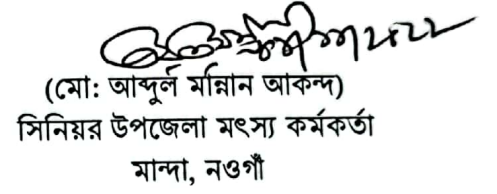 (মো: আব্দুর্ল মন্নান আকন্দ)
সিনিয়র উপজেলা মৎস্য কর্মকর্তা
মান্দা, নওগাঁ